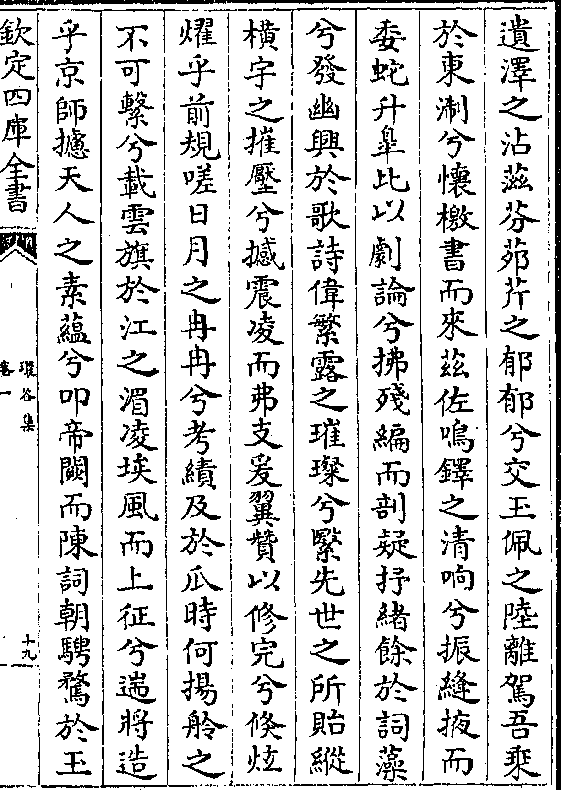 遺澤之沾蒞芬茆芹之郁郁兮交玉佩之陸離駕吾椉
於東淛兮懐檄書而來兹佐鳴鐸之清响兮振縫掖而
委蛇升臯比以劇論兮拂殘編而剖疑抒緒餘於詞藻
兮發幽興於歌詩偉繁露之璀璨兮繄先世之所貽縱
橫字之摧壓兮撼震凌而弗支爰翼贊以修完兮倐炫
燿乎前規嗟日月之冉冉兮考績及於瓜時何揚舲之
不可繫兮載雲旗於江之湄凌埃風而上征兮遄將造
乎京師攄天人之素蘊兮叩帝闕而陳詞朝騁騖於玉
欽定四庫全書
卷一
十九